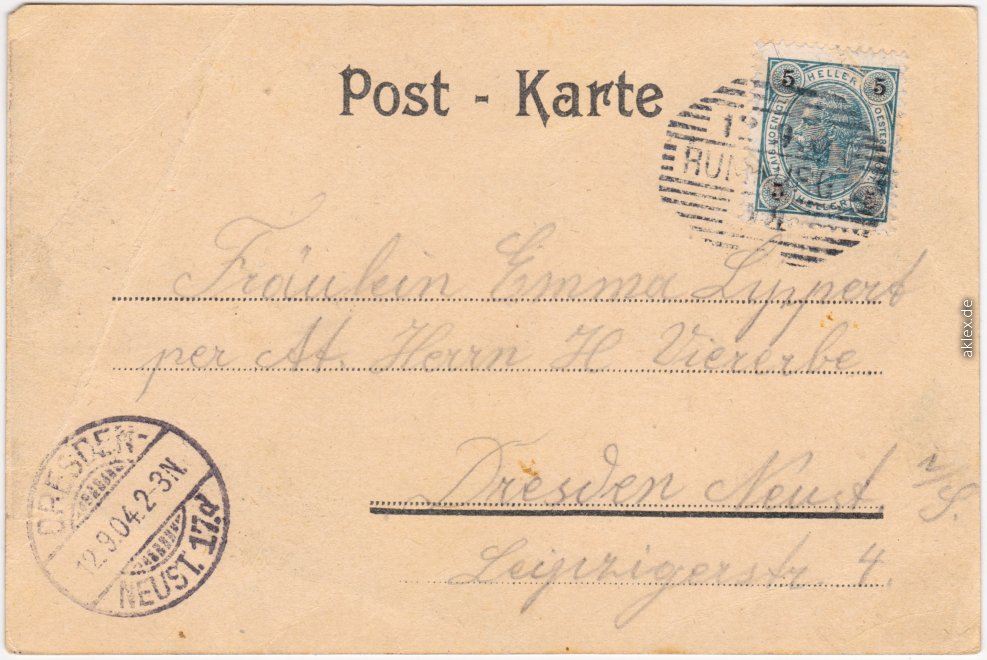 Post - Karte
5 HELLER 5
5 HELLER
12 9
RUM
Fräulein Emma Lippert
per At. Herrn H Viererbe
Dresden Neust.
Leipzigerstr. 4.
DRESDEN-
12.9.04.2-3N.
NEUST. 1
aklex.de